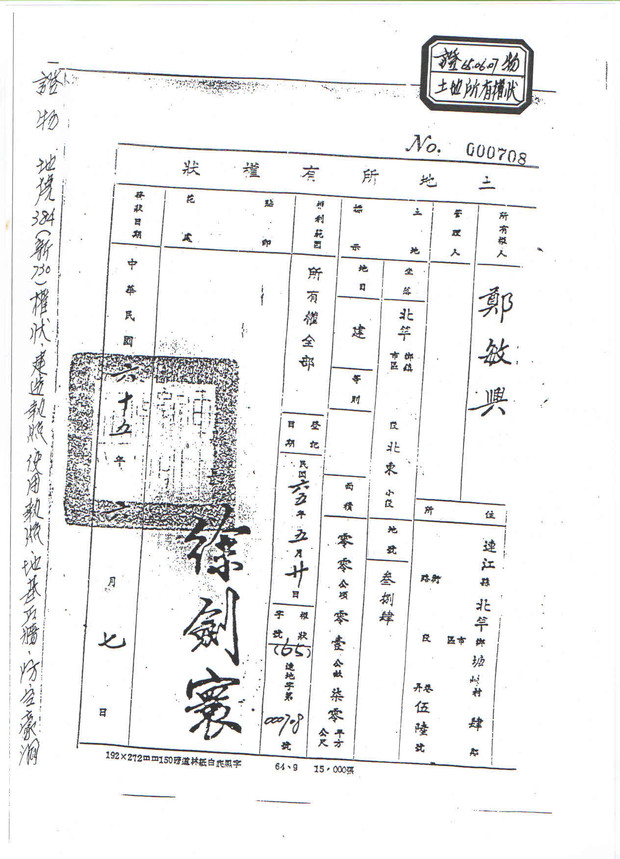 證 65.06.07 物
土地所有權狀
No. 000708
土地所有權狀
所有權人
鄭敏興
住所
連江縣 北竿鄉 塘岐村 肆鄰
街路 段 巷弄 伍陸號
管理人
土地標示
坐落
北竿 鄉鎮市區
段 北東 小段
地號
叁捌肆
地目
建
等則
面積
零零公頃零壹公畝柒零平方公尺
權利範圍
所有權全部
登記日期
民國六五年五月廿日
權狀字號
(65)連地字第000708號
貼印花處
發狀日期
中華民國六十五年六月七日
徐劍寰
證物 地號384(新730)權狀 建造執照 使用執照 地基石牆
192×272mm150磅道林紙白底黑字 64、9 15,000張